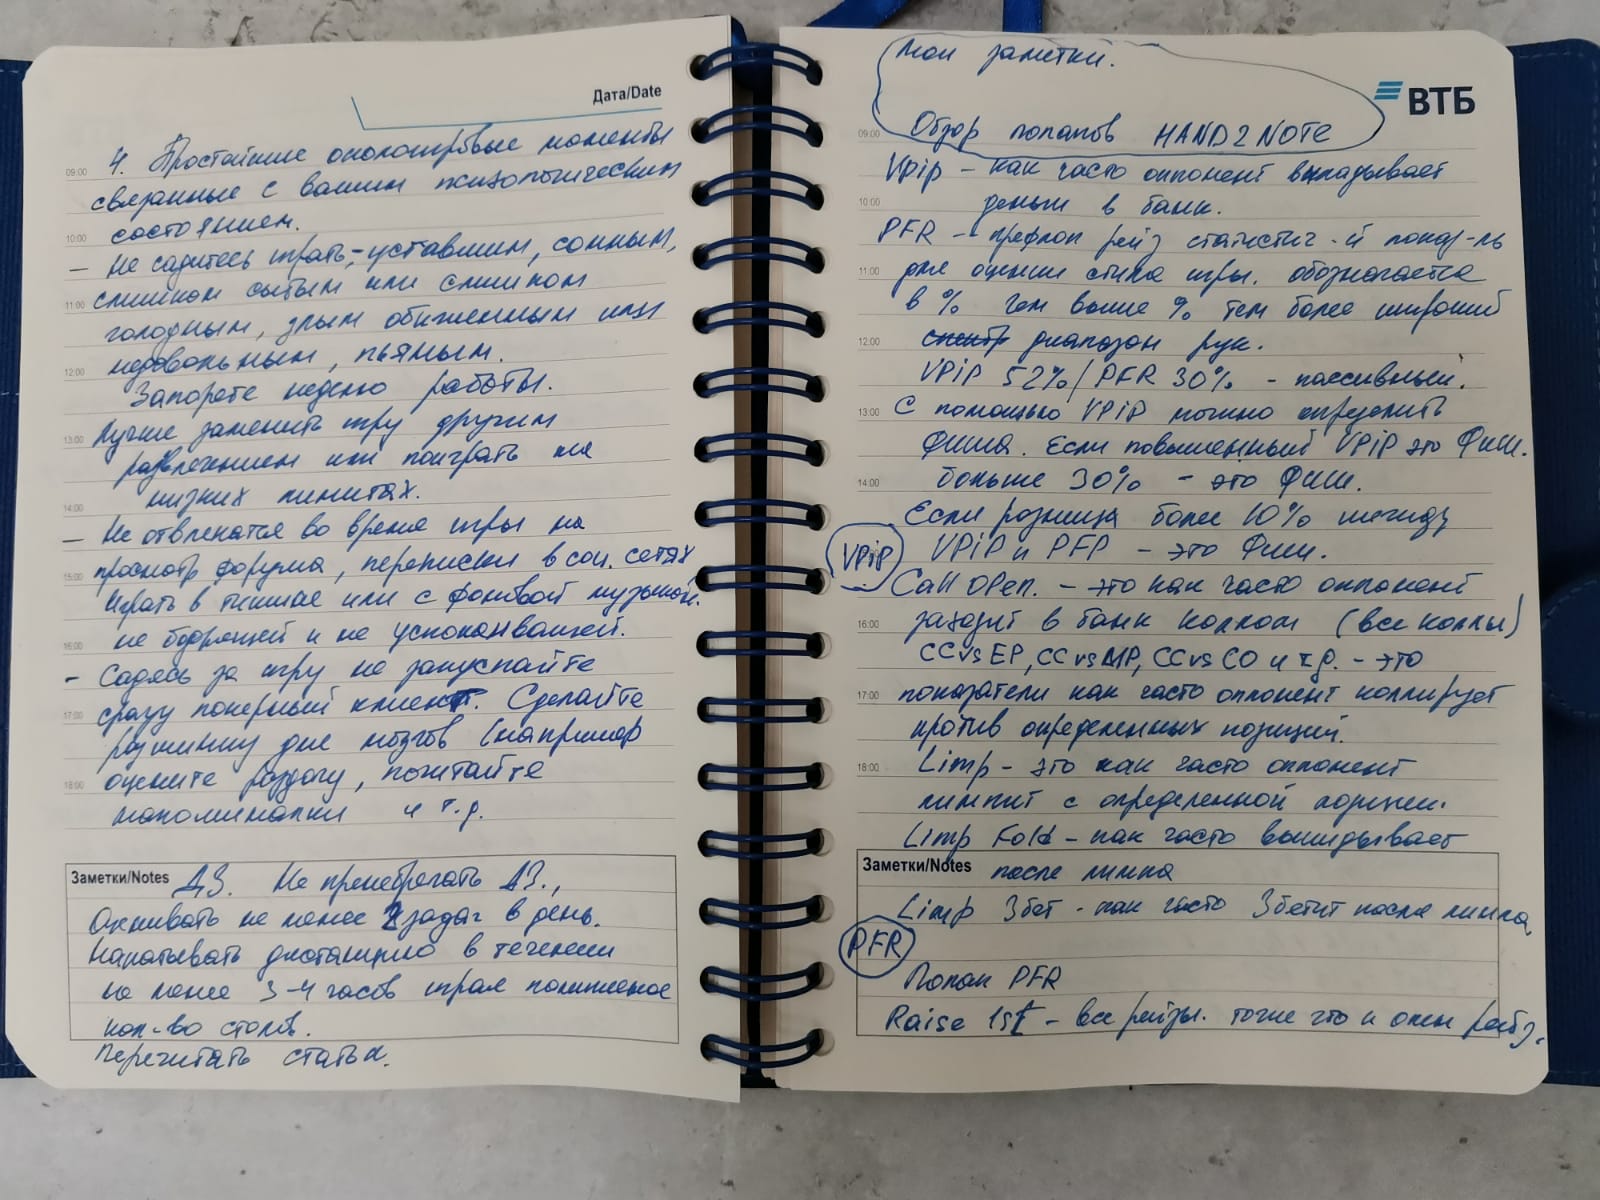 Дата/Date
4. Простейшие околоигровые моменты
связанные с вашим психологическим
состоянием.
09:00
10:00
— Не садитесь играть, уставшим, сонным,
слишком сытым или слишком
11:00
голодным, злым обиженным или
недовольным, пьяным.
12:00
Запорете неделю работы.
Лучше заменить игру другим
13:00
развлечением или поиграть на
низких лимитах.
14:00
— Не отвлекатся во время игры на
просмотр форума, переписки в соц. сетях
15:00
Играть в тишине или с фоновой музыкой.
не бодрящей и не успокаивающей.
16:00
- Садясь за игру не запускайте
сразу покерный клиент. Сделайте
17:00
разминку для мозгов (например
оцените раздачу, почитайте
18:00
напоминалки и т.д.
Заметки/Notes
ДЗ. Не пренебрегать ДЗ.,
не менее 2 задач в день.
Накатывать дистанцию в течении
не менее 3-4 часов играя
кол-во столов.
Перечитать статьи.
Мои заметки.
ВТБ
09:00
Обзор попапов HAND2NOTE
Vpip – как часто оппонент вкладывает
деньги в банк.
10:00
PFR – префлоп рейз статистич-й показ-ль
11:00
для оценки стиля игры. обозначается
в % чем выше % тем более широкий
12:00
спектр диапазон рук.
VPiP 52%/PFR 30% - пассивный.
13:00
С помощью VPiP можно определить
Фиша. Если повышенный VPiP это Фиш.
14:00
больше 30% - это Фиш.
Если разница более 10% между
VPiP
VPiP и PFP – это Фиш.
Call Open. – это как часто оппонент
16:00
заходит в банк коллом (все коллы)
CCvsEP, CCvsMP, CCvsCO и т.д. - это
17:00
показатели как часто оппонент коллирует
против определенных позиций.
18:00
Limp – это как часто оппонент
лимпит с определенной позиции.
Limp Fold – как часто выкидывает
Заметки/Notes
после лимпа
Limp 3бет - как часто 3бетит после лимпа,
PFR
Попап PFR
Raise 1st – все рейзы. тоже что и опен рейз.